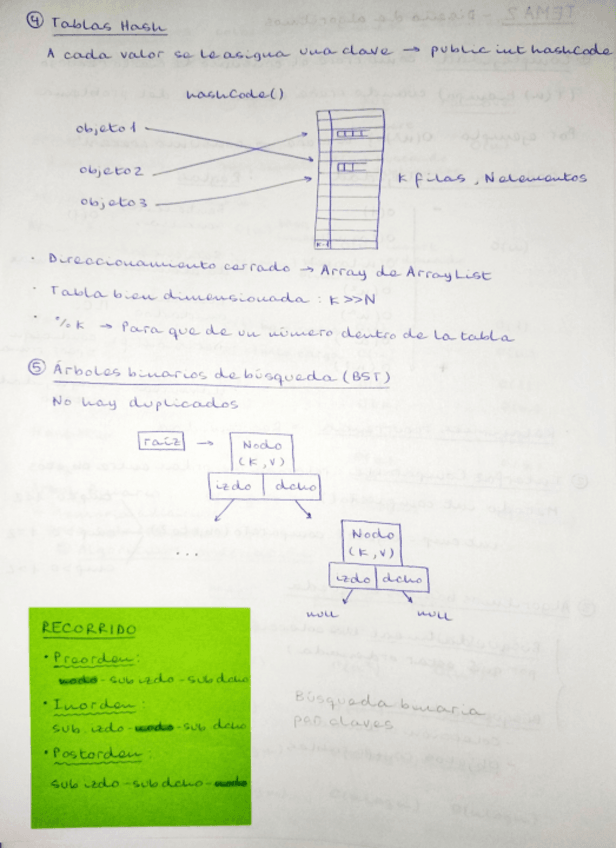 ④ Tablas Hash
A cada valor se le asigna una clave → public int hashCode
hashCode()
objeto1
objeto2
objeto3
K filas, N elementos
K-1
· Direccionamiento cerrado → Array de ArrayList
· Tabla bien dimensionada: K>>N
· % K → Para que de un número dentro de la tabla
⑤ Árboles binarios de búsqueda (BST)
No hay duplicados
raíz →
Nodo
(K,V)
izdo dcho
...
Nodo
(K,V)
izdo dcho
null null
RECORRIDO
· Preorden:
nodo - sub izdo - sub dcho
· Inorden:
sub. izdo - nodo - sub dcho
· Postorden:
sub izdo - sub dcho - nodo
Búsqueda binaria
por claves